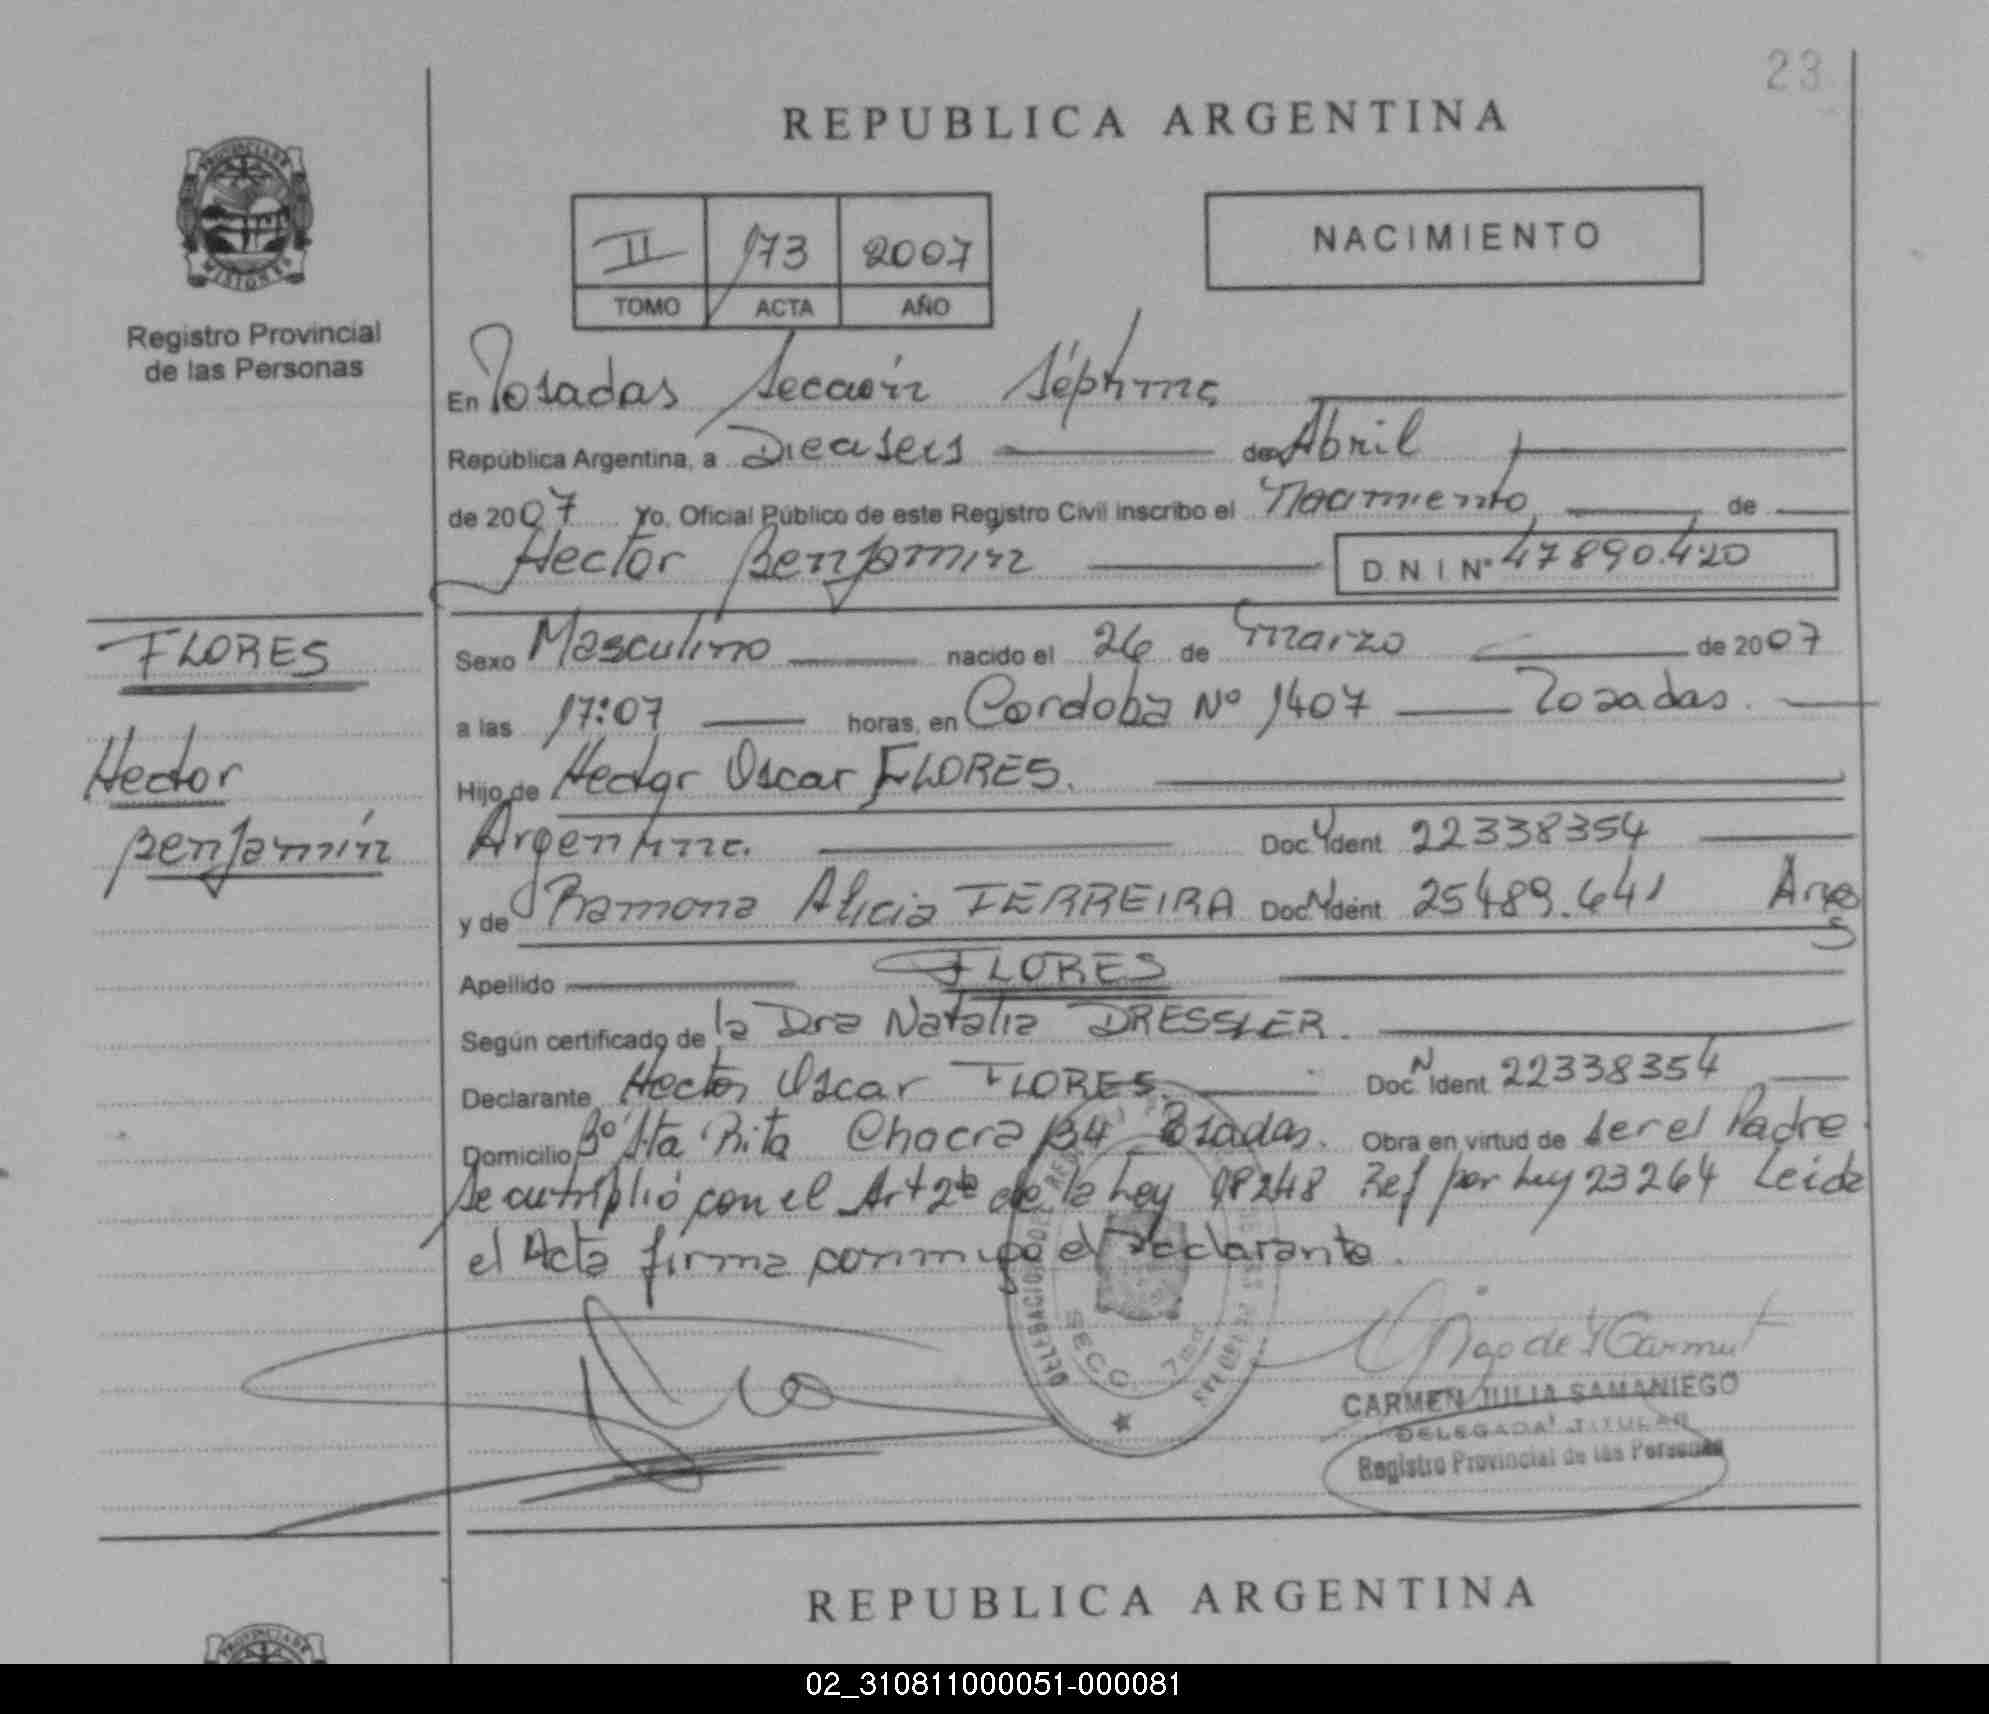 23
REPUBLICA ARGENTINA
PROVINCIA DE
MISIONES
Registro Provincial
de las Personas
II 173 2007
TOMO ACTA AÑO
NACIMIENTO
En Posadas Sección Séptima
República Argentina, a Dieciseis de Abril
de 2007 Yo, Oficial Público de este Registro Civil inscribo el Nacimiento de
Hector Benjamín D N I Nº 47890.420
FLORES
Hector
Benjamín
Sexo Masculino nacido el 26 de marzo de 2007
a las 17:07 horas, en Cordoba Nº 1407 Posadas.
Hijo de Hector Oscar FLORES.
Argentina. Doc N Ident 22338354
y de Ramona Alicia FERREIRA Doc N Ident 25489.641
Apellido FLORES
Según certificado de la Dra Natalia DRESSLER.
Declarante Hector Oscar FLORES. Doc N Ident 22338354
Domicilio Bº Sta Rita Chacra 134 Posadas. Obra en virtud de ser el Padre.
Se cumplió con el Art 2º de la Ley 18248 Ref por Ley 23264 Leida
el Acta firma conmigo el declarante.
SECC. 7ma
CARMEN JULIA SAMANIEGO
DELEGADA TITULAR
Registro Provincial de las Personas
REPUBLICA ARGENTINA
PROVINCIA DE
02_310811000051-000081